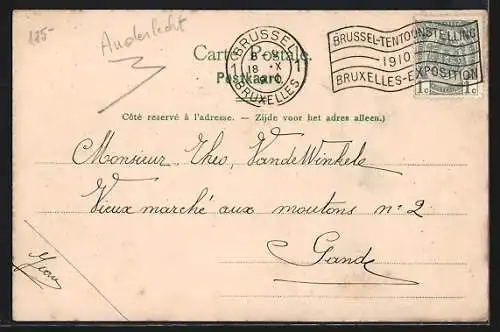 125-
Anderlecht
Carte Postale.
Postkaart
BRUSSEL
1 8-9 1
18 X
1910
BRUXELLES
BRUSSEL-TENTOONSTELLING
1910
BRUXELLES-EXPOSITION
1c 1c
Côté reservé à l'adresse. — Zijde voor het adres alleen.)
Monsieur Theo, VandeWinkele
Vieux marché aux moutons n° 2
Gand
Jean